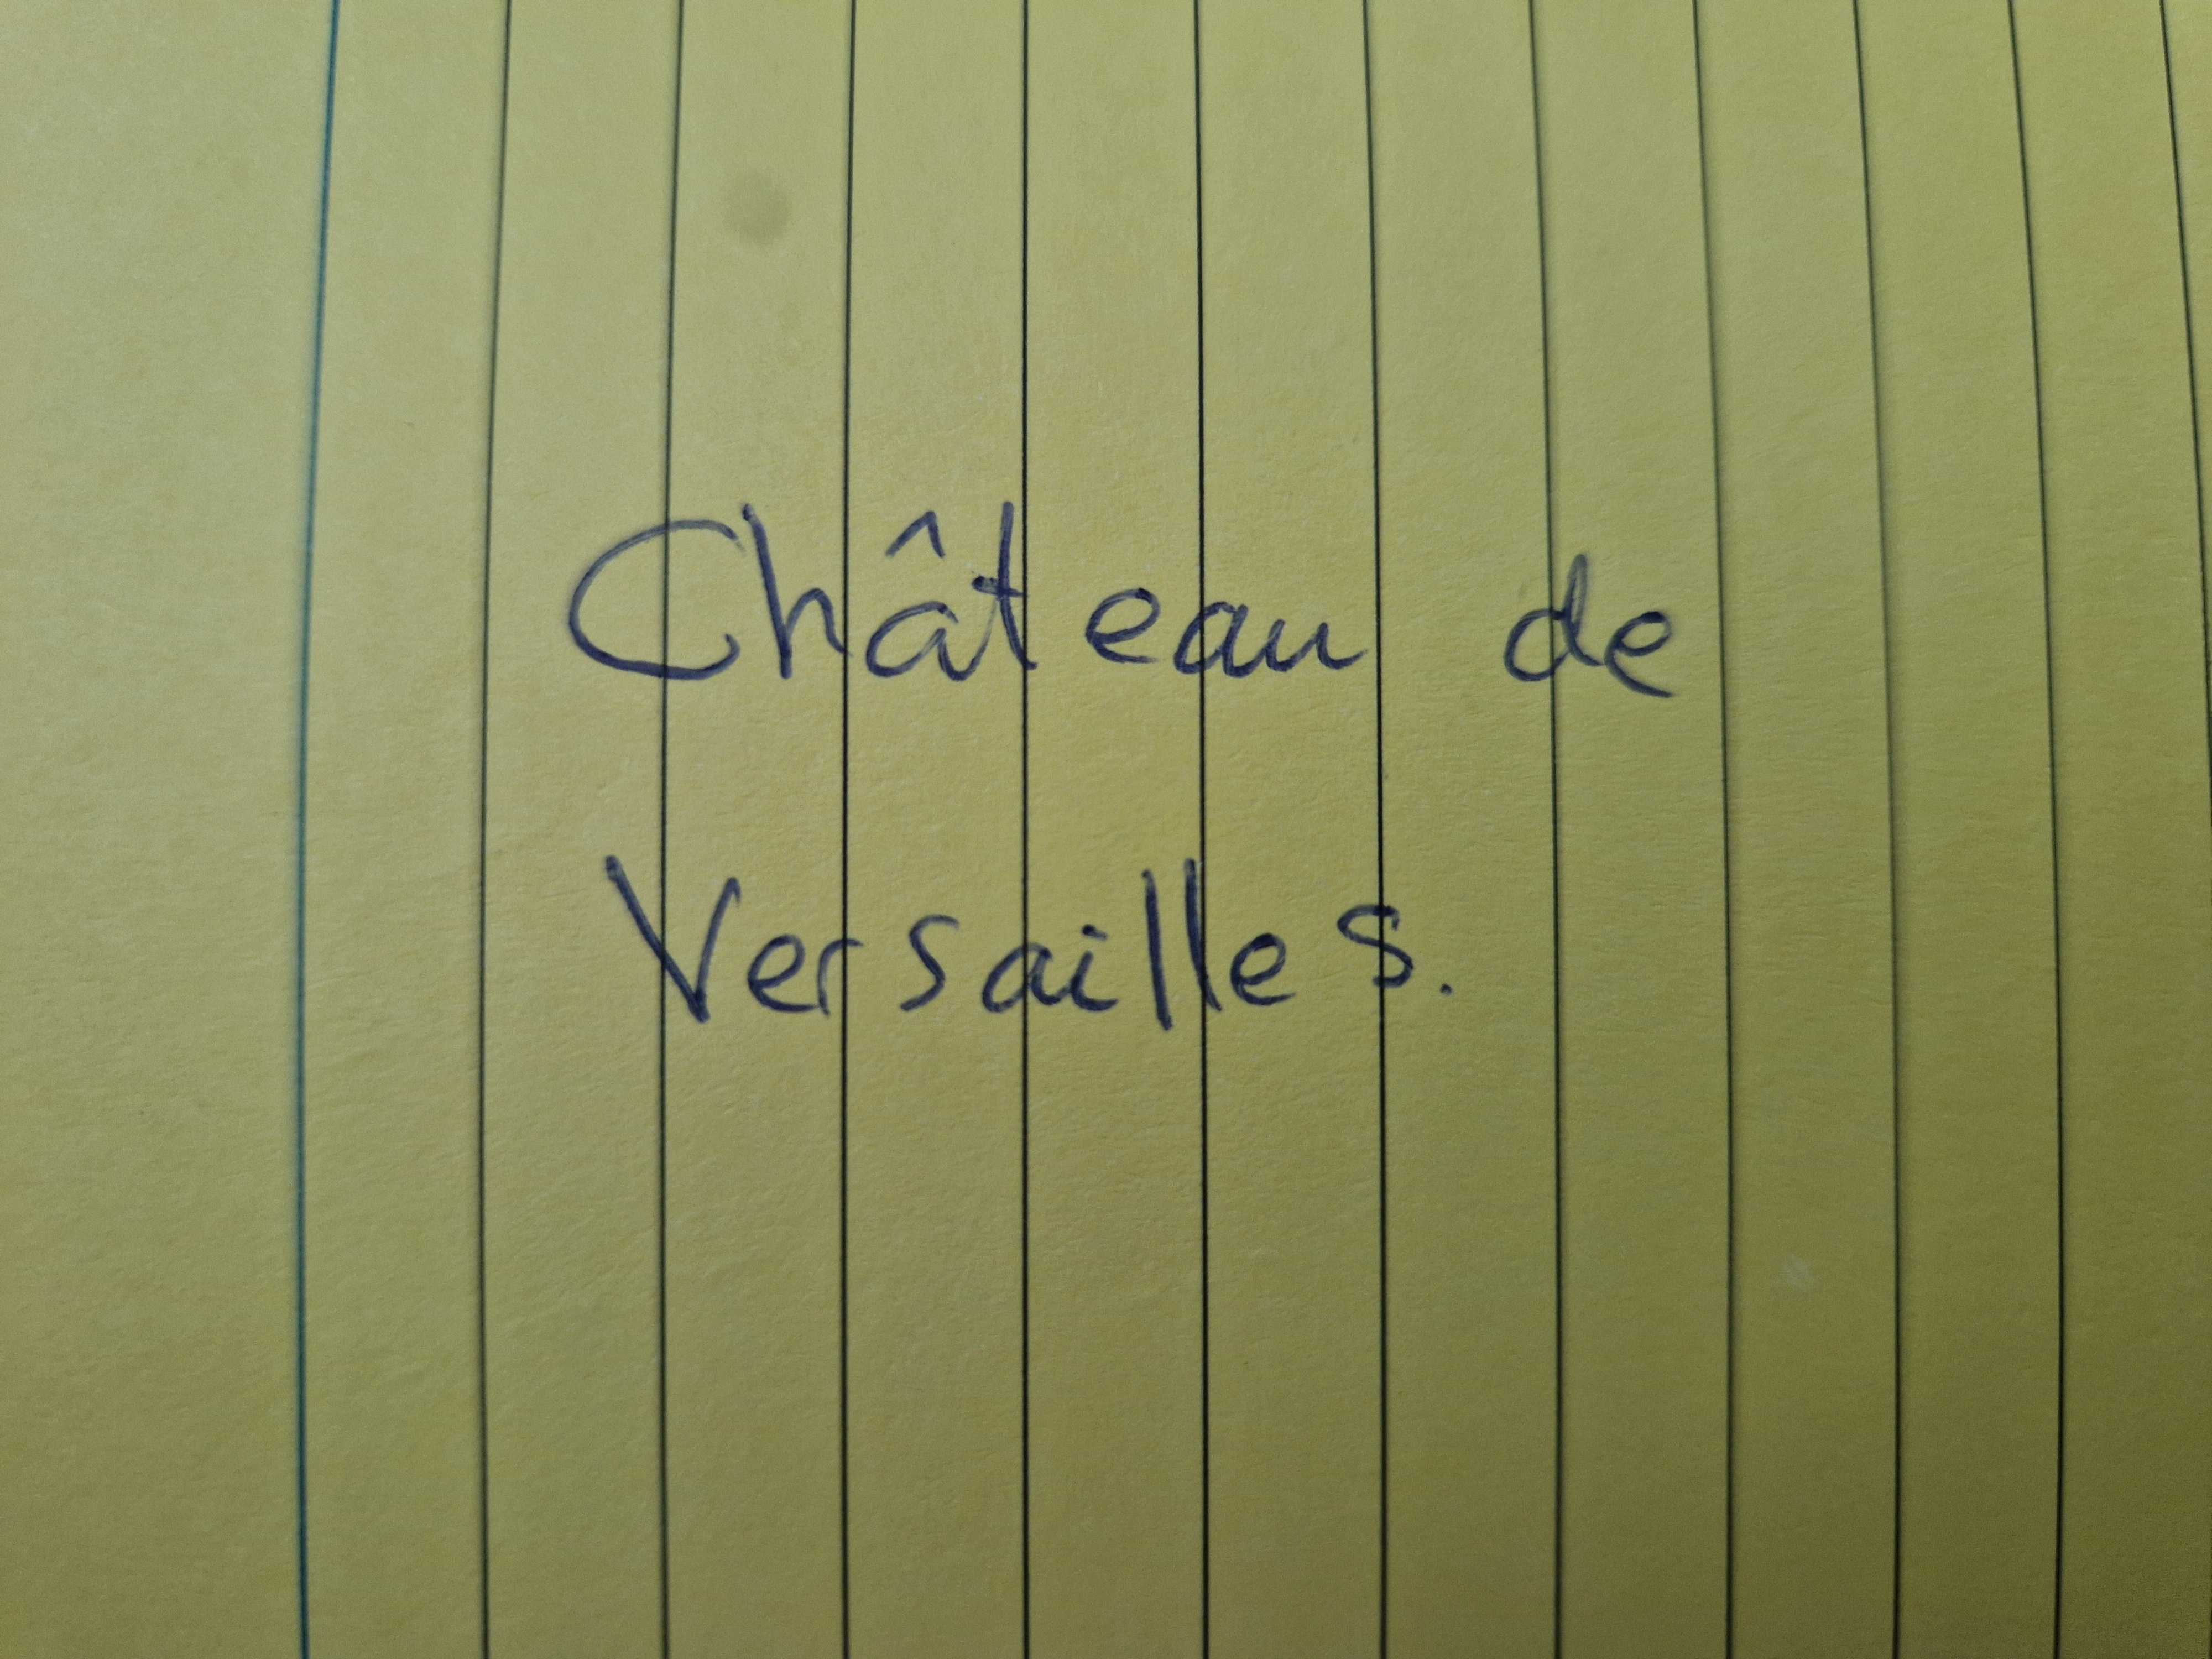 Château de
Versailles.